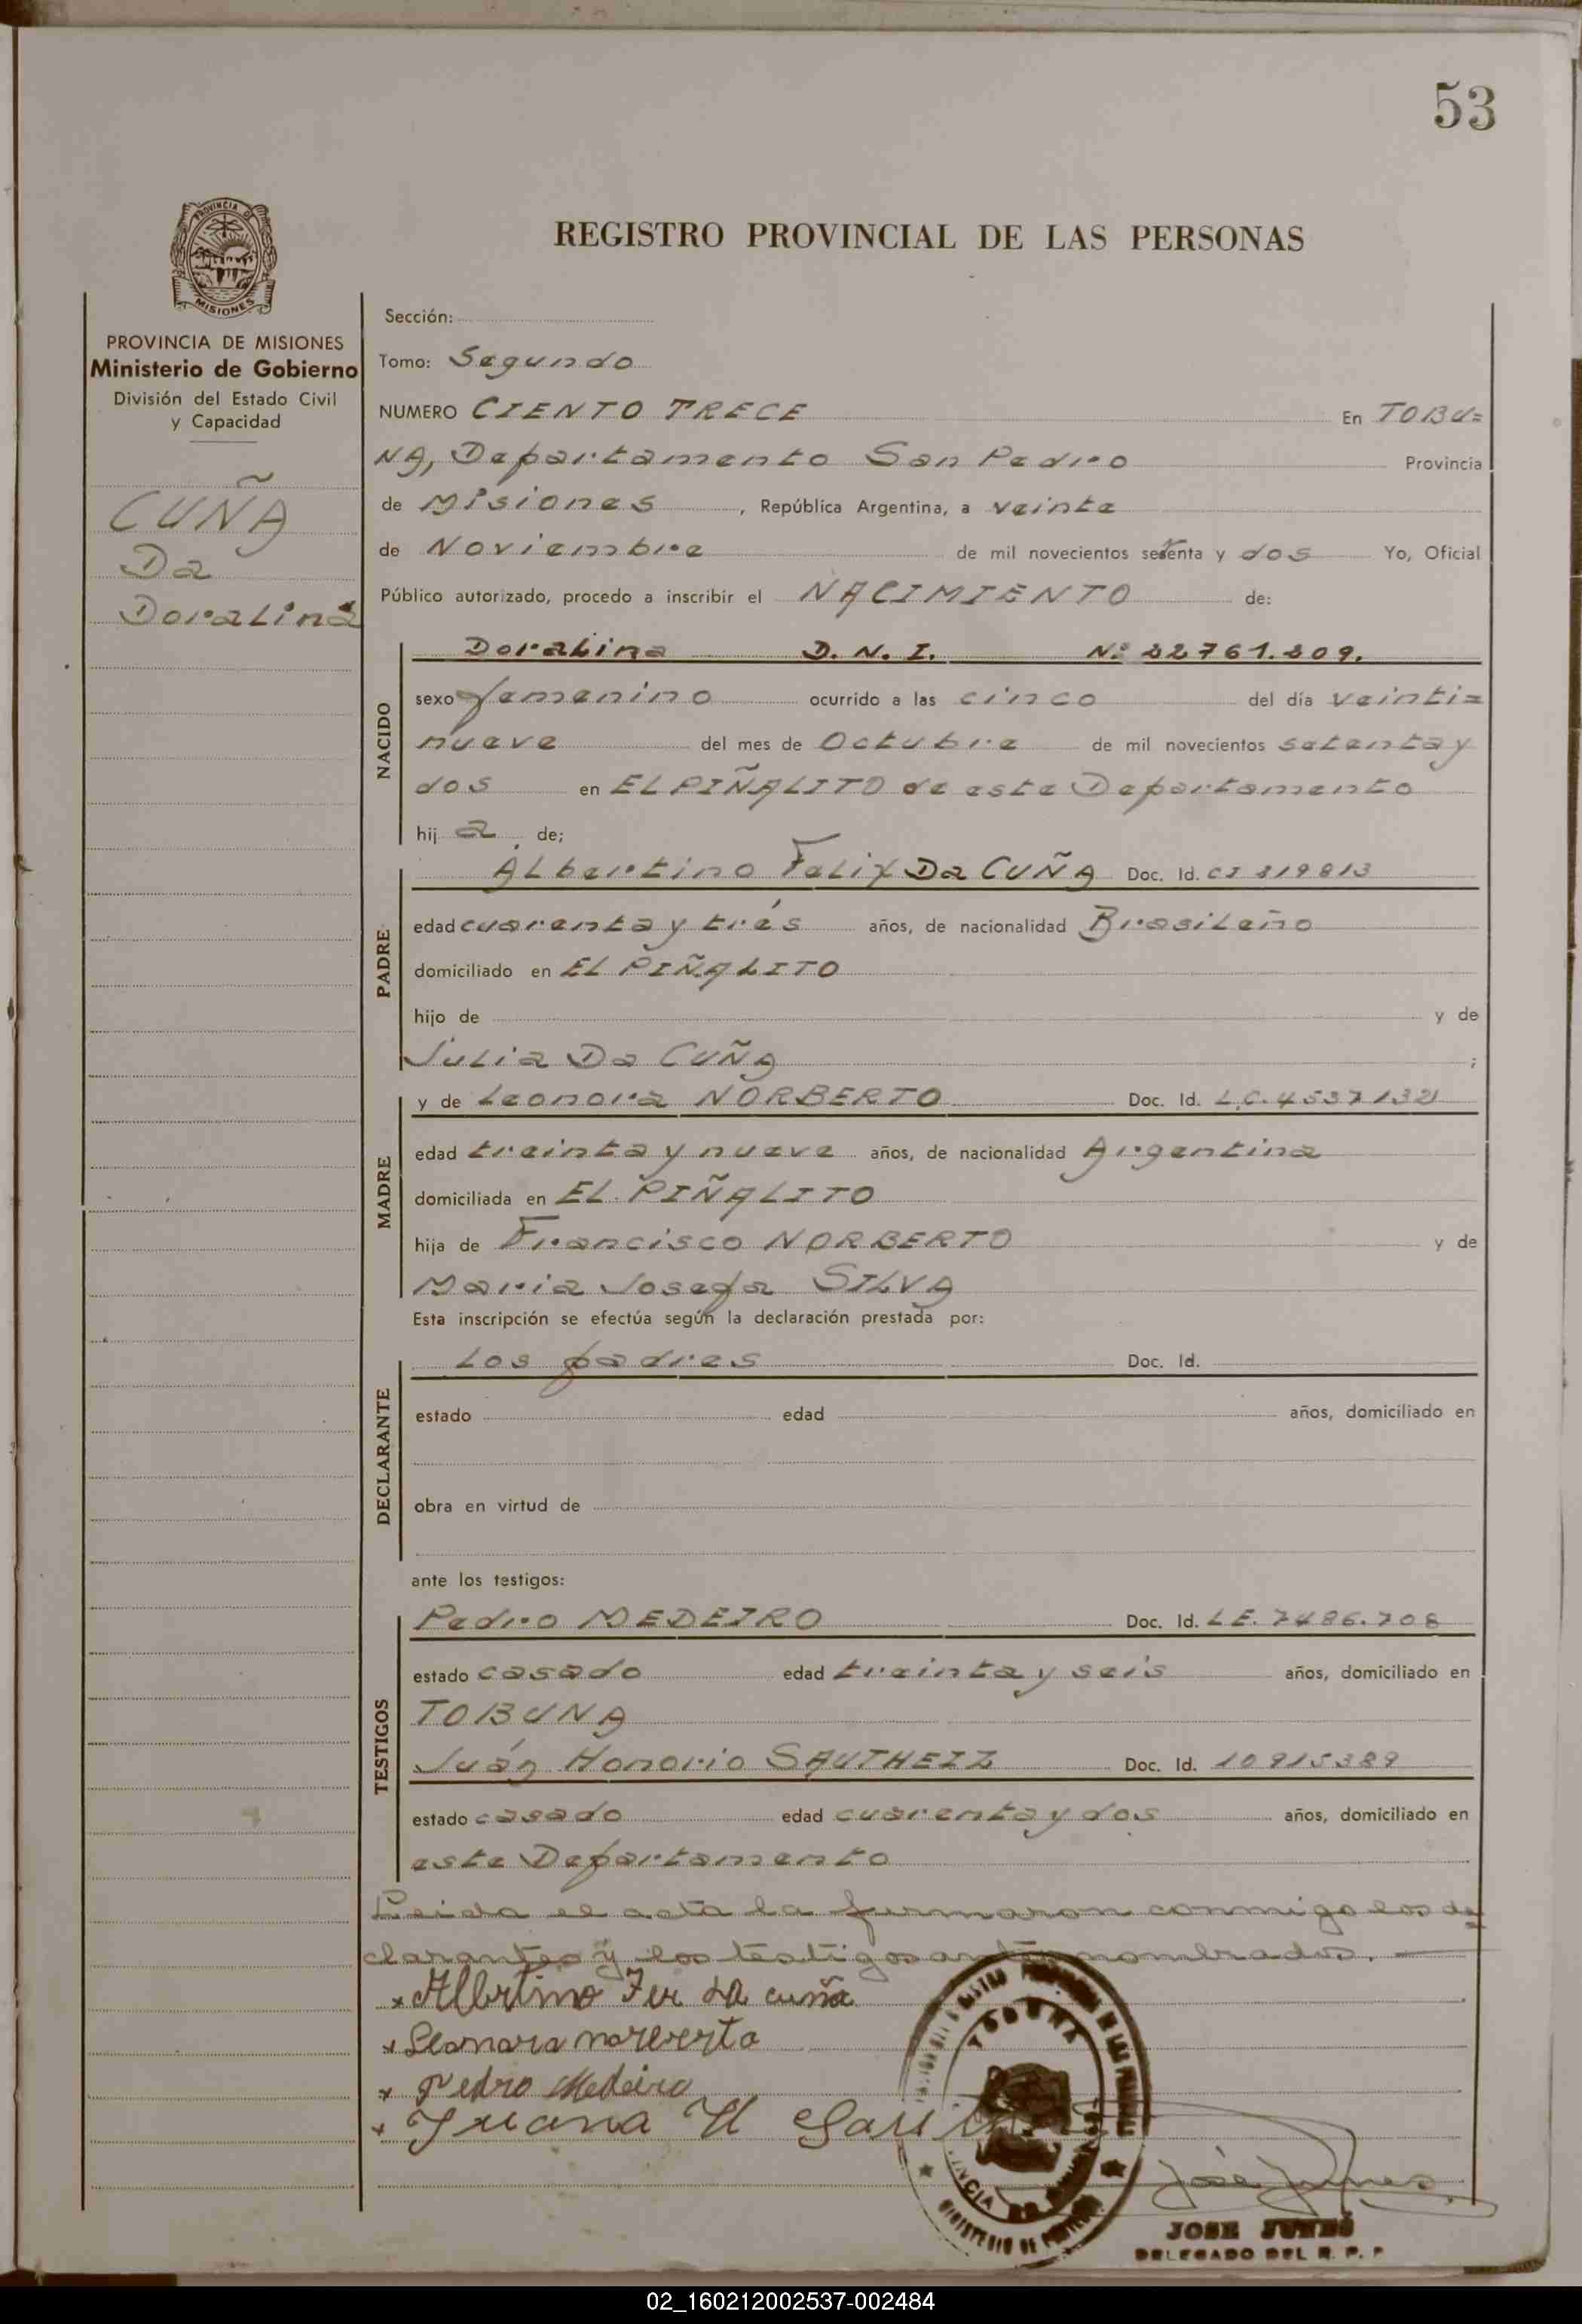 53
PROVINCIA DE MISIONES
REGISTRO PROVINCIAL DE LAS PERSONAS
PROVINCIA DE MISIONES
Ministerio de Gobierno
División del Estado Civil
y Capacidad
CUÑA
Da
Doralina
Sección:
Tomo: Segundo
NUMERO CIENTO TRECE En TOBU=
NA, Departamento San Pedro Provincia
de Misiones, República Argentina, a veinte
de Noviembre de mil novecientos setenta y dos Yo, Oficial
Público autorizado, procedo a inscribir el NACIMIENTO de:
NACIDO
Doralina D. N. I. Nº 22761.209.
sexo femenino ocurrido a las cinco del día veinti=
nueve del mes de Octubre de mil novecientos setenta y
dos en EL PIÑALITO de este Departamento
hij a de;
PADRE
Albertino Felix Da CUÑA Doc. Id. CI 319813
edad cuarenta y trés años, de nacionalidad Brasileño
domiciliado en EL PIÑALITO
hijo de y de
Julia Da CUÑA ;
MADRE
y de Leonora NORBERTO Doc. Id. L.C. 4537132
edad treinta y nueve años, de nacionalidad Argentina
domiciliada en EL PIÑALITO
hija de Francisco NORBERTO y de
Maria Josefa SILVA
Esta inscripción se efectúa según la declaración prestada por:
DECLARANTE
Los padres Doc. Id.
estado edad años, domiciliado en
obra en virtud de
ante los testigos:
TESTIGOS
Pedro MEDEIRO Doc. Id. LE. 7486.708
estado casado edad treinta y seis años, domiciliado en
TOBUNA
Juán Honorio SAUTHEIZ Doc. Id. 10915389
estado casado edad cuarenta y dos años, domiciliado en
este Departamento
Leida el acta la firmaron conmigo los de
clarantes y los testigos antes nombrados.
x Albertino Fer da cuña
x Leonora norverto
x Pedro Medeiro
x Juana H
TOBUNA
José Junes
JOSE JUNES
DELEGADO DEL R. P. P
02_160212002537-002484